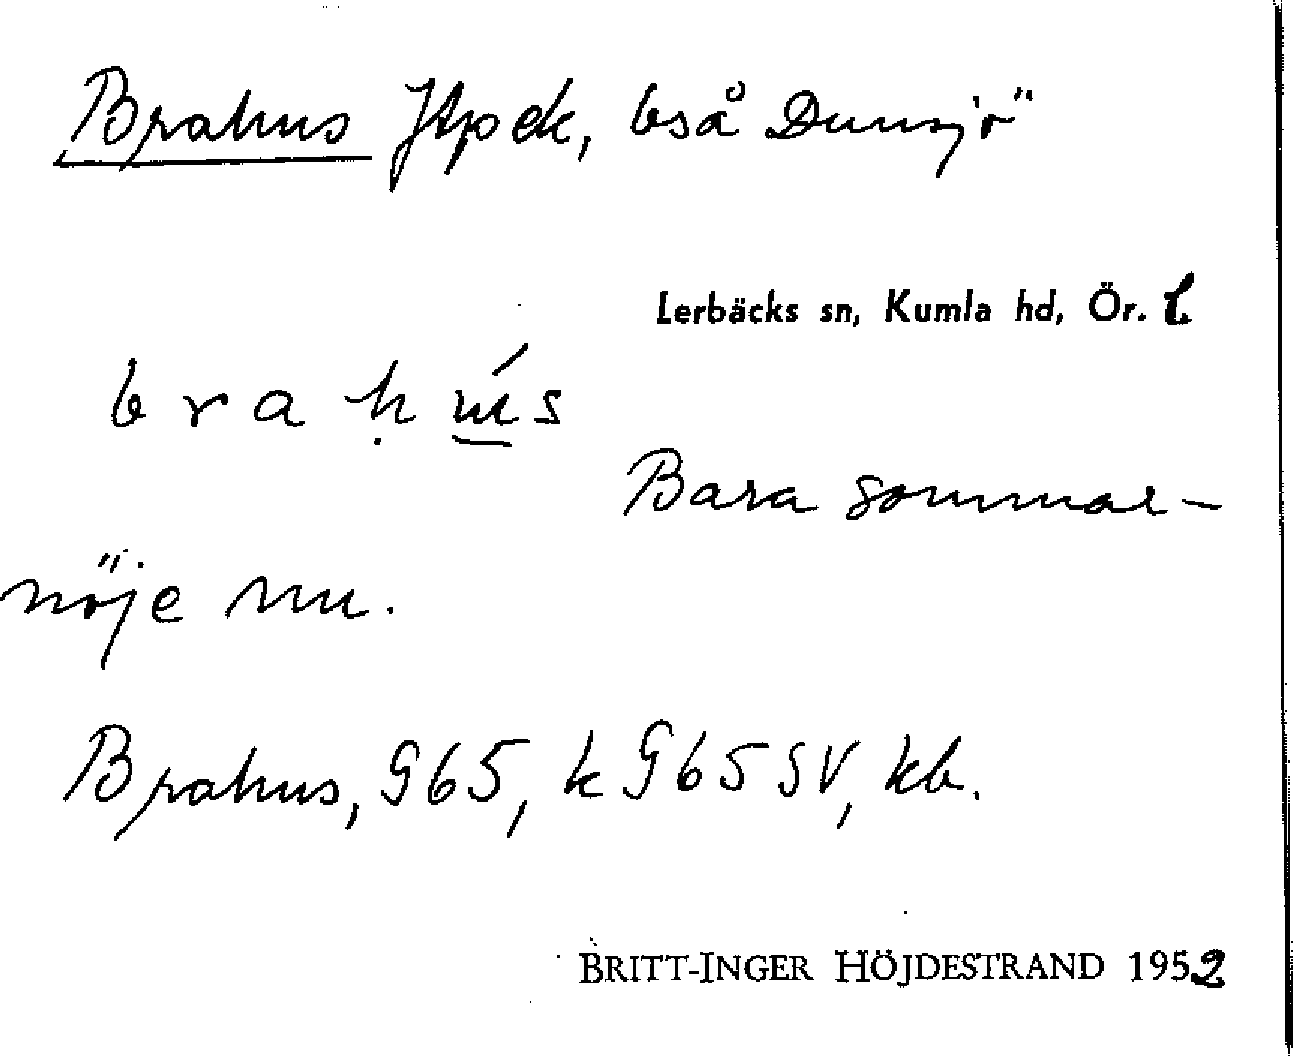 Brahus Jtp ek, bså Dunsjö
Lerbäcks sn, Kumla hd, Ör. l.
b r a ḥ ú̲ s
Bara sommar-
nöje nu.
Brahus, G65, k G65 SV, kb.
BRITT-INGER HÖJDESTRAND 1952